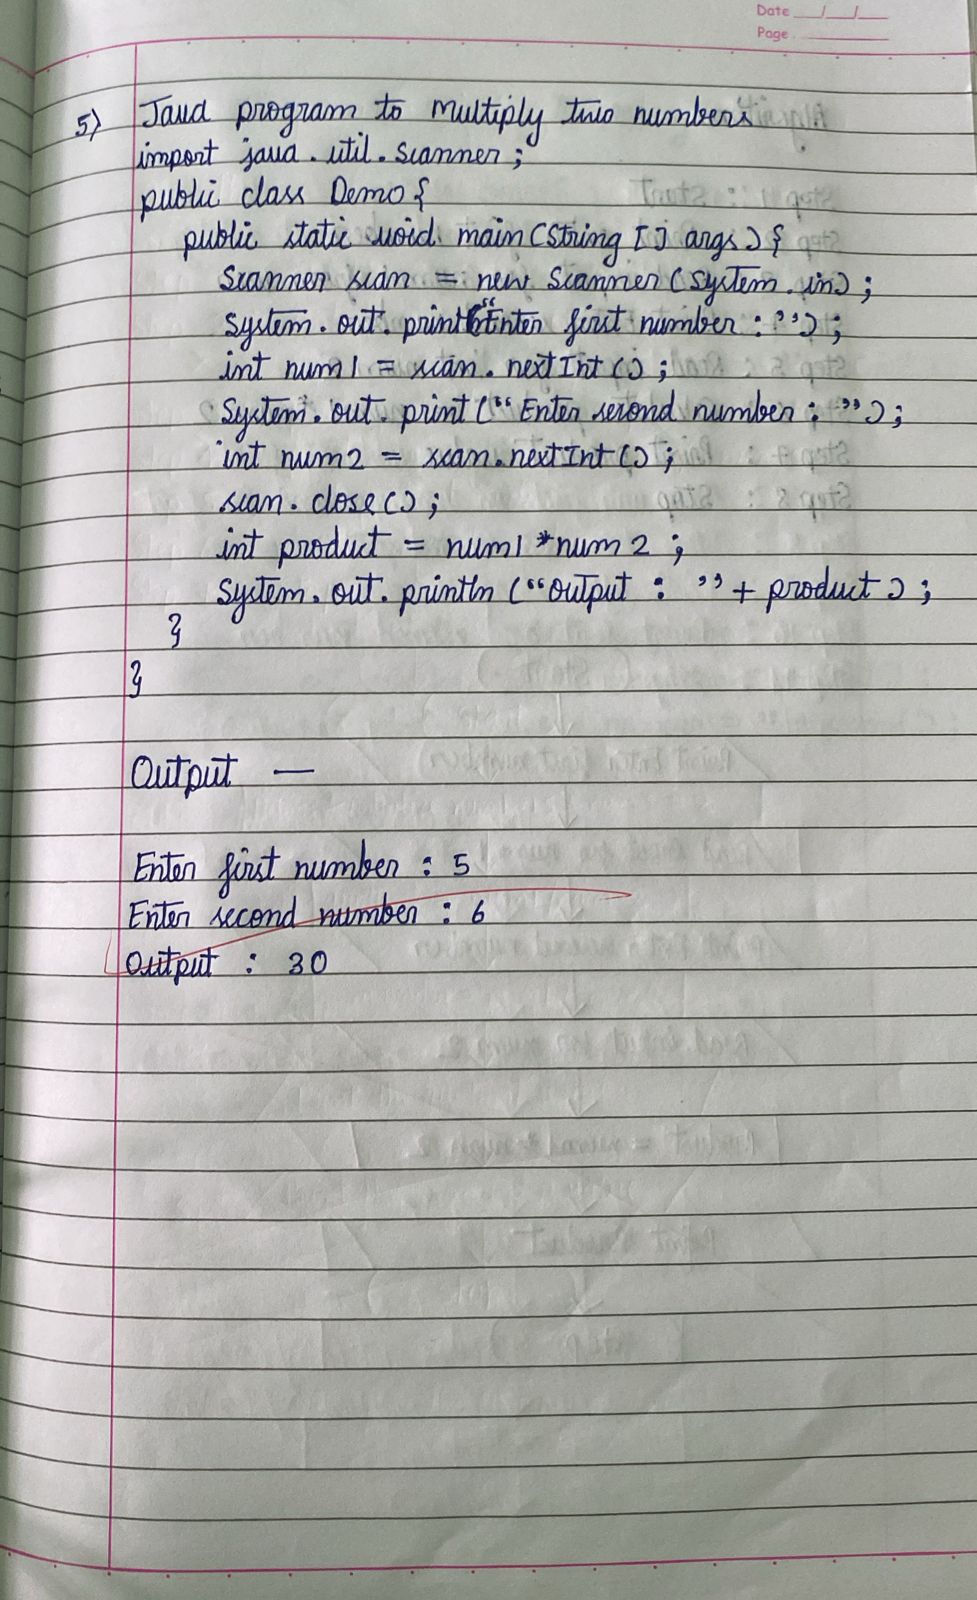 Date __/__/__
Page
5) Java program to multiply two numbers
import java.util.Scanner;
public class Demo{
public static void main(String [] args){
Scanner scan = new Scanner(System.in);
System.out.print("Enter first number : ");
int num1 = scan.nextInt();
System.out.print("Enter second number : ");
int num2 = scan.nextInt();
scan.close();
int product = num1 * num2 ;
System.out.println ("Output : " + product);
}
}
Output —
Enter first number : 5
Enter second number : 6
Output : 30